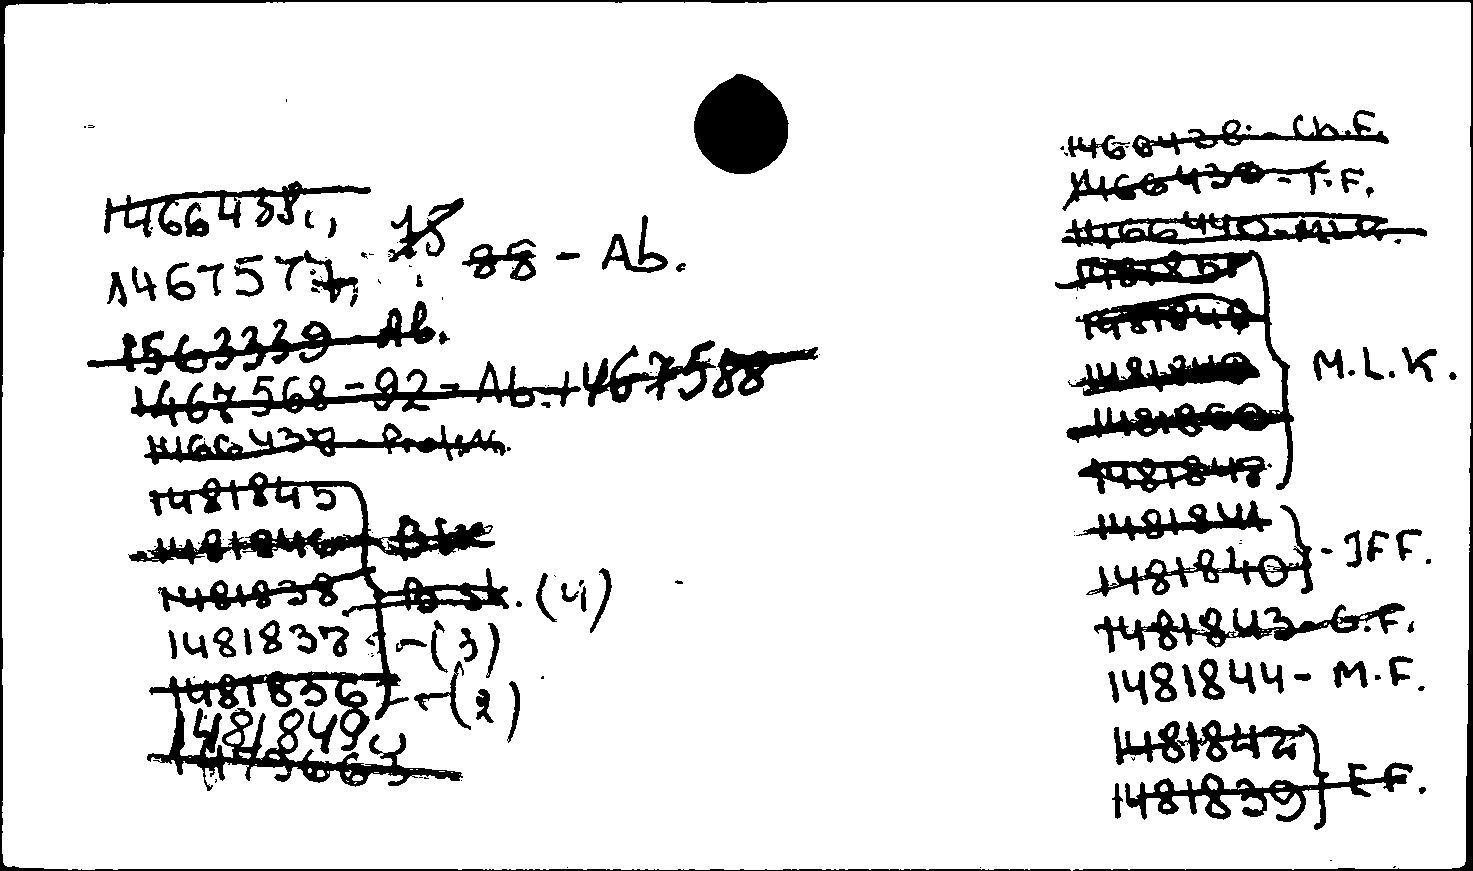 1466438,,
1467577, 15 88 - Ab.
1563339 - Ab.
1467568 - 92 - Ab. 1467588
1466437
1481845
1481846
1481838 (4)
1481837 - (3)
1481836 - (2)
1481849
1473663
1466438 - Ch.F.
1466439 - F.F.
1466440 - M.L.K.
1481851
1481848
M.L.K.
1481850
1481847
1481841
1481840 - J F F.
1481843 - G.F.
1481844 - M.F.
1481842
1481839 E F.